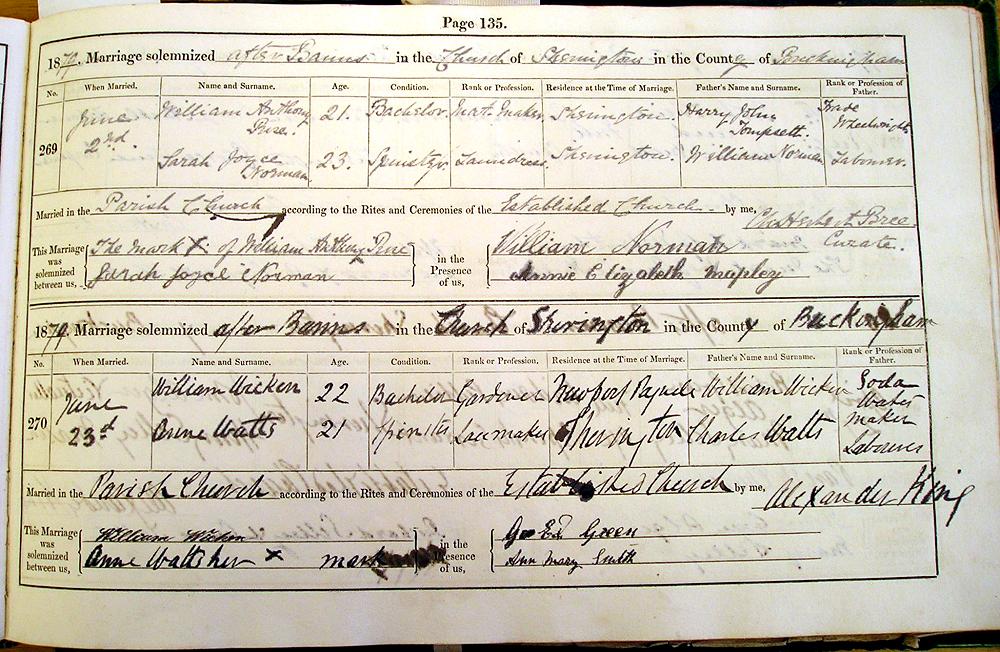 Page 135.
1879. Marriage solemnized after Banns in the Church of Sherington in the County of Buckingham
No. When Married. Name and Surname. Age. Condition. Rank or Profession. Residence at the Time of Marriage. Father's Name and Surname. Rank or Profession of Father.
269 June 2nd. William Anthony Pine. 21. Bachelor Mat Maker Sherington. Harry John Tompsett. Wheelwright
Sarah Joyce Norman 23. Spinster. Laundress Sherington. William Norman Labourer.
Married in the Parish Church according to the Rites and Ceremonies of the Established Church by me, Herbert Bree. Curate.
This Marriage was solemnized between us,
The mark X of William Anthony Pine
Sarah Joyce Norman
in the Presence of us,
William Norman
Annie Elizabeth Mapley
1879. Marriage solemnized after Banns in the Church of Sherington in the County of Buckingham
No. When Married. Name and Surname. Age. Condition. Rank or Profession. Residence at the Time of Marriage. Father's Name and Surname. Rank or Profession of Father.
270 June 23d William Wicken 22 Bachelor Gardener Newport Pagnell William Wicken Soda Water Maker
Anne Watts 21 Spinster Lacemaker Sherington Charles Watts Labourer
Married in the Parish Church according to the Rites and Ceremonies of the Established Church by me, Alexander King
This Marriage was solemnized between us,
William Wicken
Anne Watts her X mark
in the Presence of us,
Geo Ed Green
Ann Mary Smith